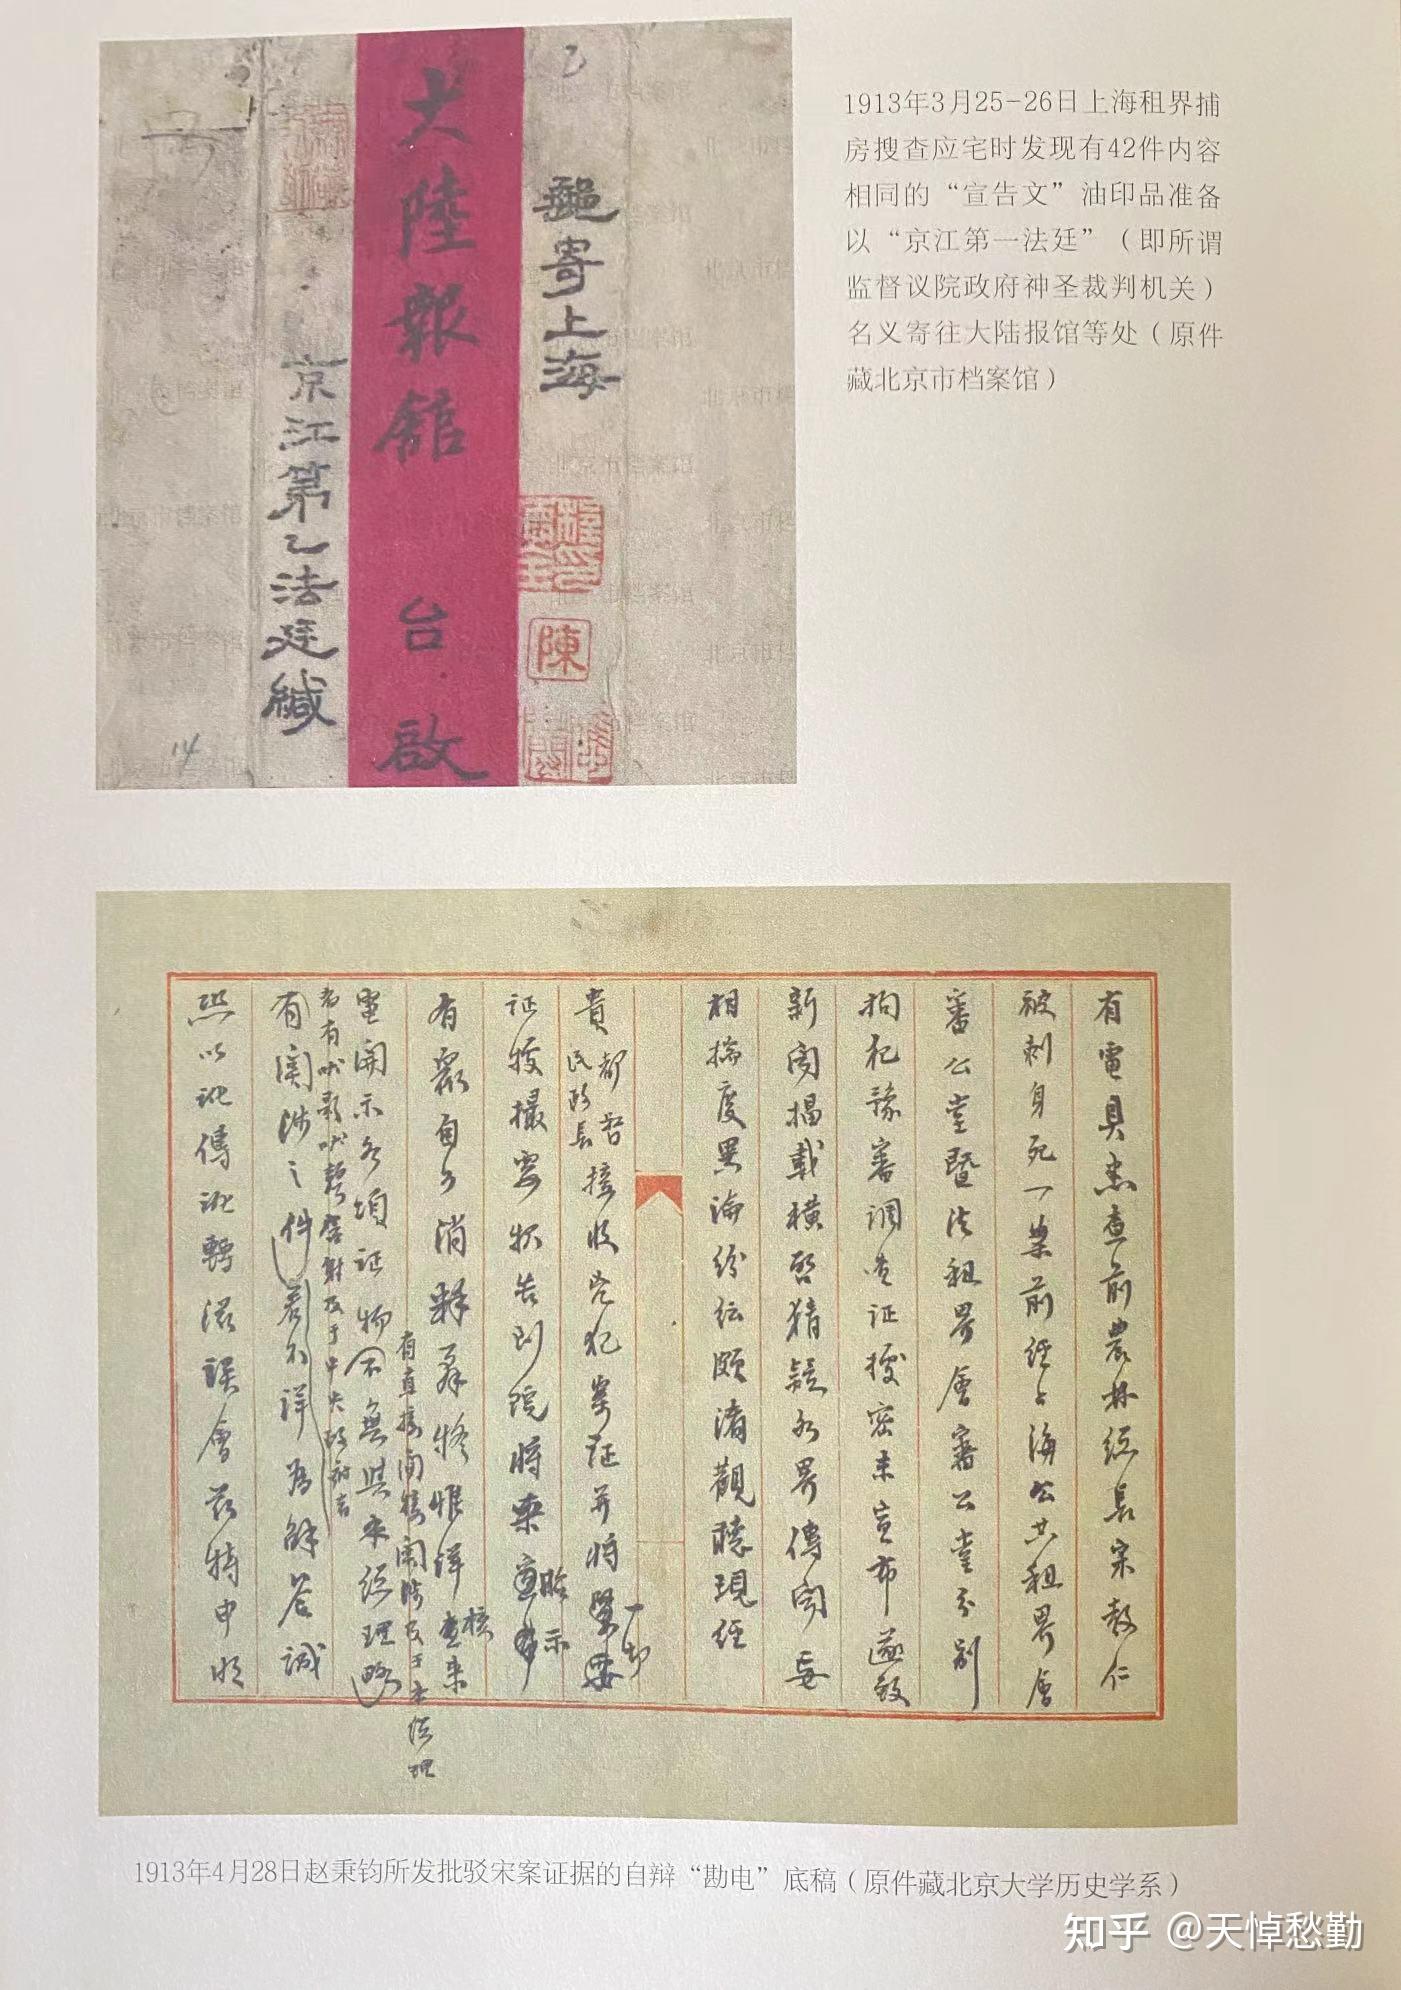 1913年3月25-26日上海租界捕
房搜查应宅时发现有42件内容
相同的“宣告文”油印品准备
以“京江第一法廷”（即所谓
监督议院政府神圣裁判机关）
名义寄往大陆报馆等处（原件
藏北京市档案馆）
寄上海
大陸報館 台啟
京江第乙法廷緘
陳
14
有電具悉查前農林總長宋教仁
被刺身死一案前經上海公共租界會
審公堂暨法租界會審公堂分别
拘犯豫審調查證據密未宣布遂致
新聞揭載横啓猜疑外界傳聞妄
相揣度異論紛紜頗淆觀聽現經
貴
都督
民政長
接收兇犯案证并将
证據撮要
有衆自可消釋羣疑惟詳
核
電開示各項证物不無與本總理略
有直接間接關涉及于本總理
有關涉之件若不詳為解答誠
者有
及于中央政府者
熙以訛傳訛轉滋誤會茲特申明
1913年4月28日赵秉钧所发批驳宋案证据的自辩“勘电”底稿（原件藏北京大学历史学系）
知乎 @天悼愁勤